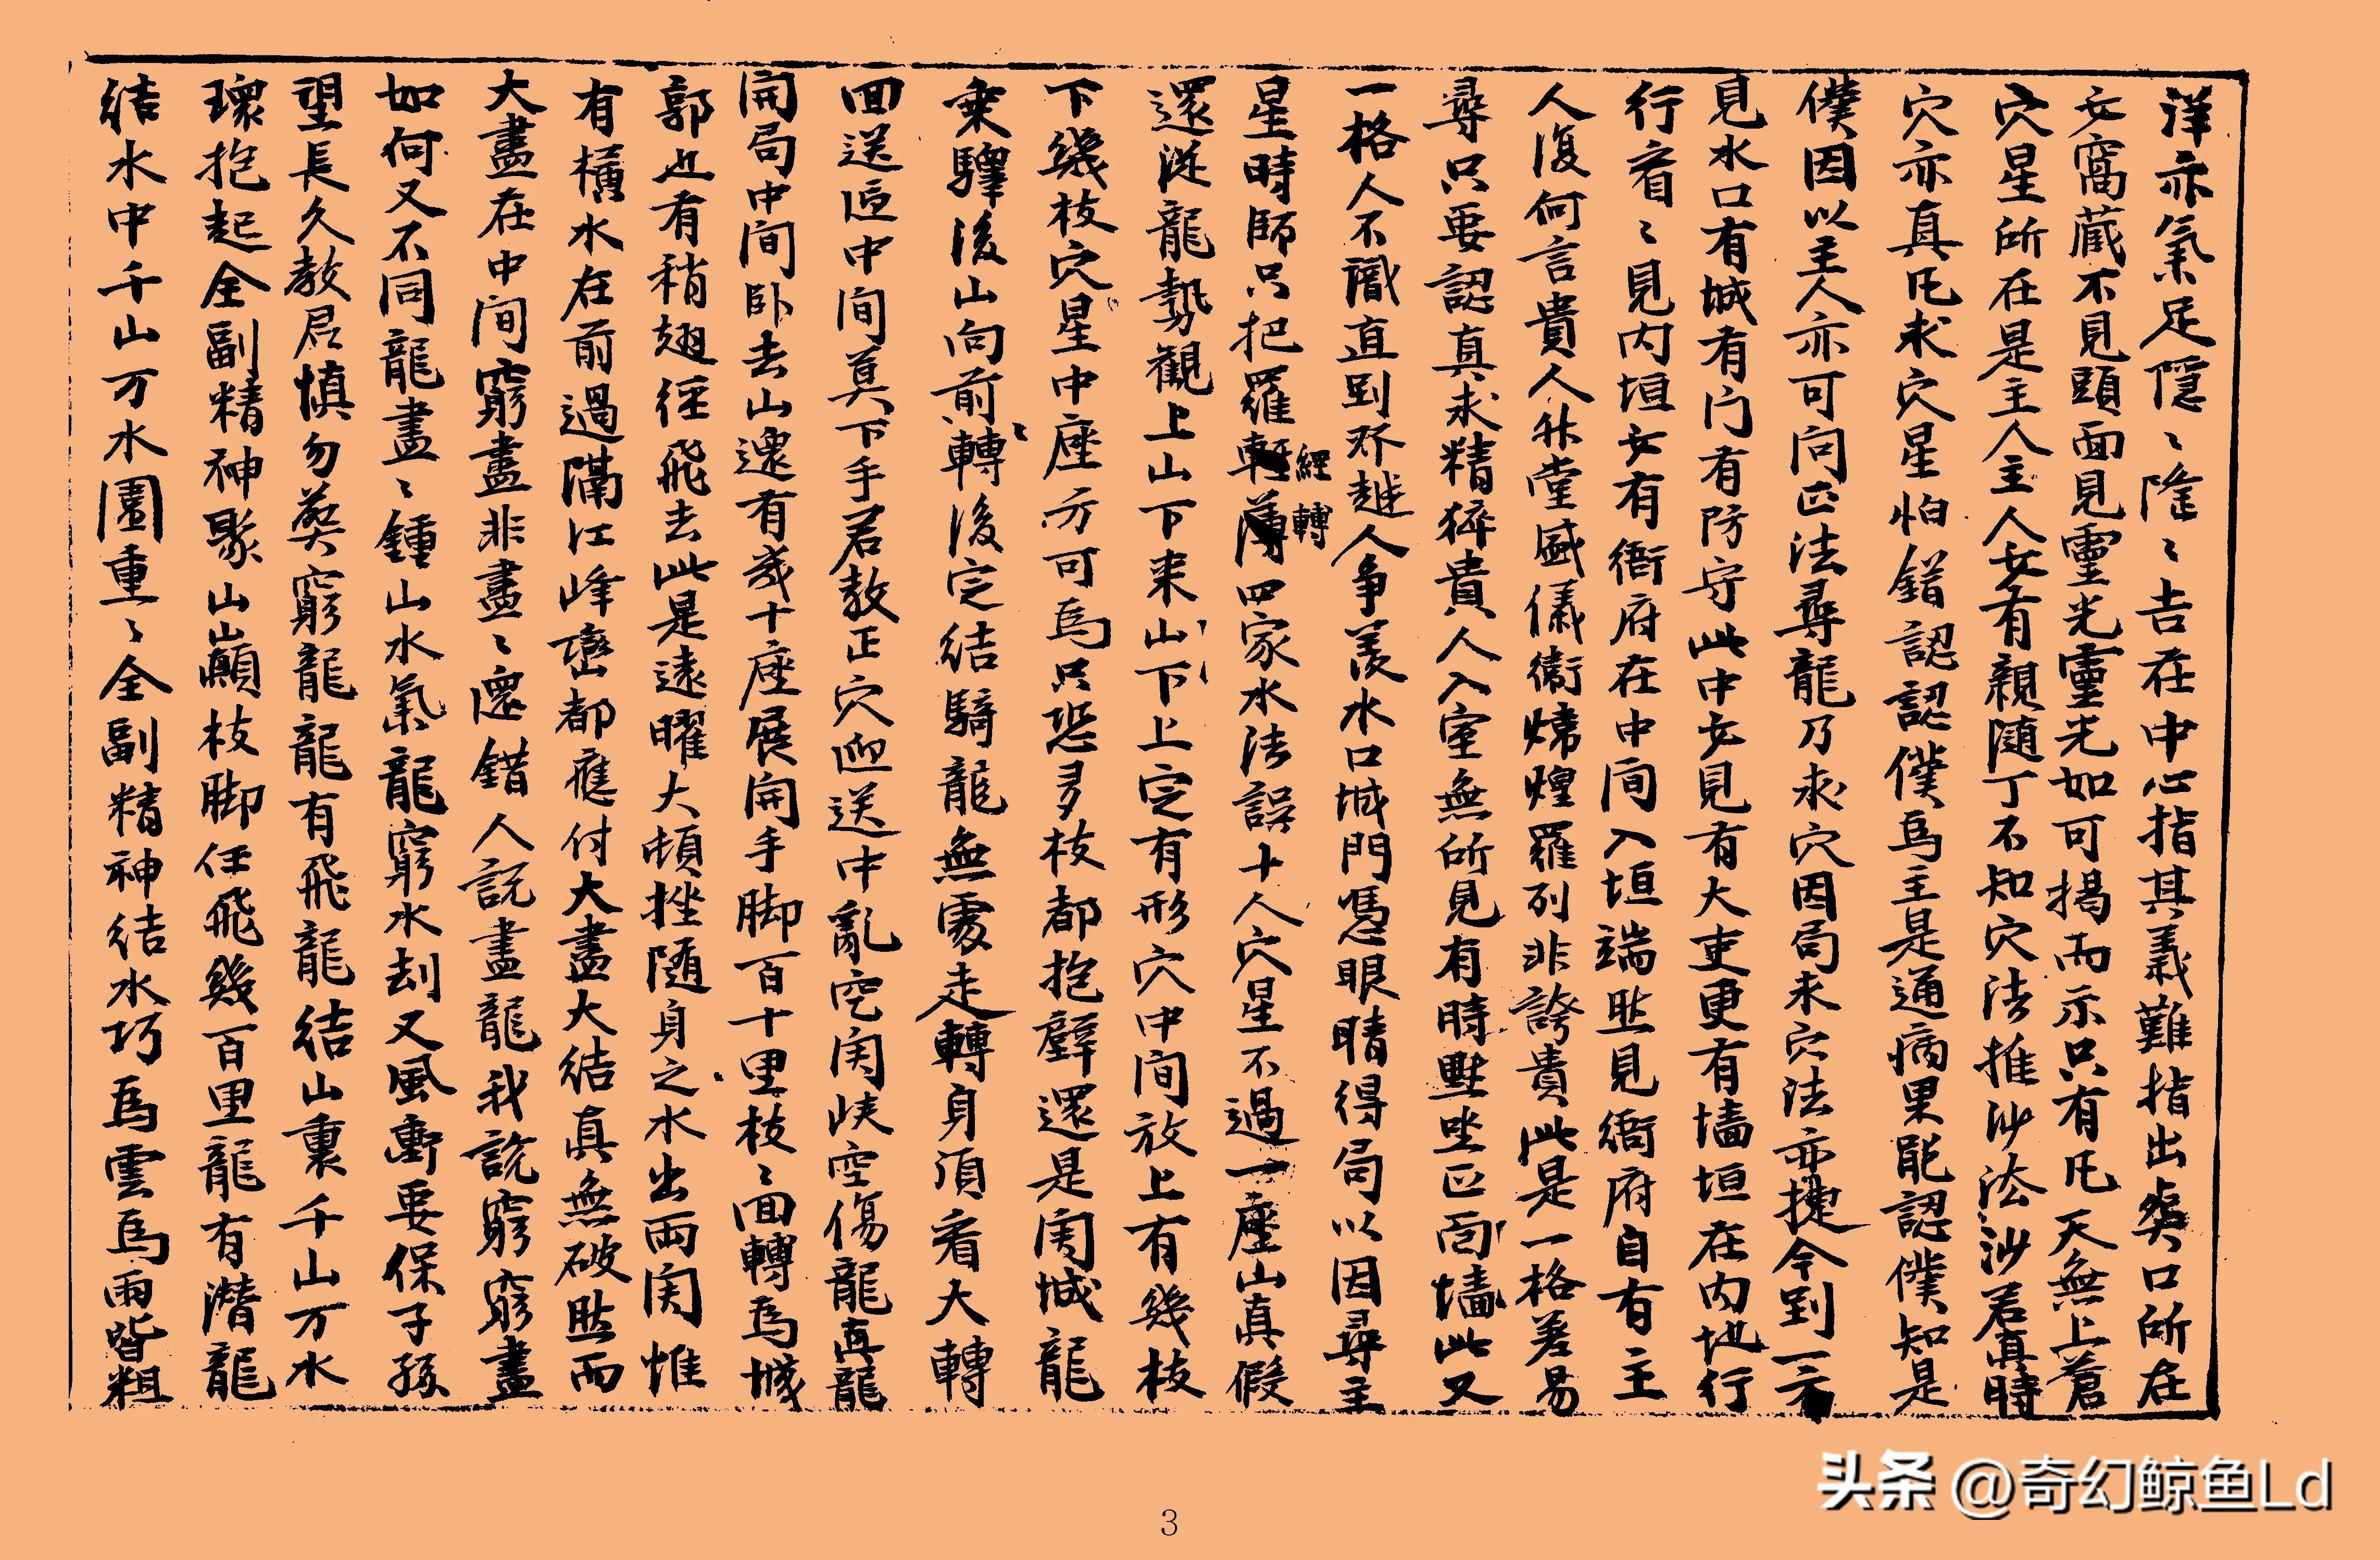 洋亦氣足隱〻隆〻吉在中心指其義難指出奧口所在
安窩藏不見頭面見靈光靈光如可揭而示只有凡天無上蒼
穴星所在是主人主人安有親隨丁不知穴法推沙法沙若真時
穴亦真凡求穴星怕錯認認僕為主是通病果能認僕知是
僕因以主人亦可问正法尋龍乃求穴因局求穴法亦捷今到一示
見水口有城有门有防守此中安見有大吏更有墙垣在内地行
行看〻見内垣安有衙府在中间入垣端然見衙府自有主
人復何言貴人升堂盛儀衛煒煌羅列非誇貴此是一格差易
尋只要認真求精猝貴人入室無所見有時默坐正面墙此又
一格人不識直到邪越人争羨水口城門憑眼睛得局以因尋主
星時師只把羅經轉四家水法誤十人穴星不過一座山真假
還從龍勢觀上山下来山下上定有形穴中间放上有幾枝
下幾枝穴星中座方可為只恐多枝都抱壁還是関城龍
乗驛後山向前轉後完結騎龍無處走轉身須看大轉
囬送逗中间莫下手君教正穴迎送中亂空関峽空傷龍真龍
開局中间卧去山還有幾十座展開手脚百十里枝〻囬轉為城
郭也有稍翅徑飛去此是遠曜大頓挫随身之水出両関惟
有橫水在前過滿江峰巒都應付大盡大結真無破然而
大盡在中间窮盡非盡〻還錯人説盡龍我説窮窮盡
如何又不同龍盡〻鍾山水氣龍窮水刦又風衝要保子孫
望長久教君慎勿葬窮龍龍有飛龍結山裏千山万水
環抱起全副精神聚山巔枝脚任飛幾百里龍有潛龍
結水中千山万水園重〻全副精神結水巧為雲為雨皆粗
头条 @奇幻鲸鱼Ld
3